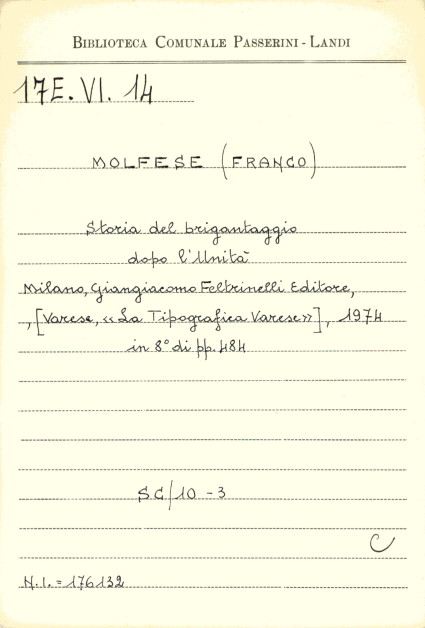 BIBLIOTECA COMUNALE PASSERINI - LANDI
17E. VI. 14
MOLFESE (FRANCO)
Storia del brigantaggio
dopo l'Unità
Milano, Giangiacomo Feltrinelli Editore,
, [Varese, «La Tipografica Varese»], 1974
in 8° di pp. 484
SC/10 - 3
C
N.I. = 176132